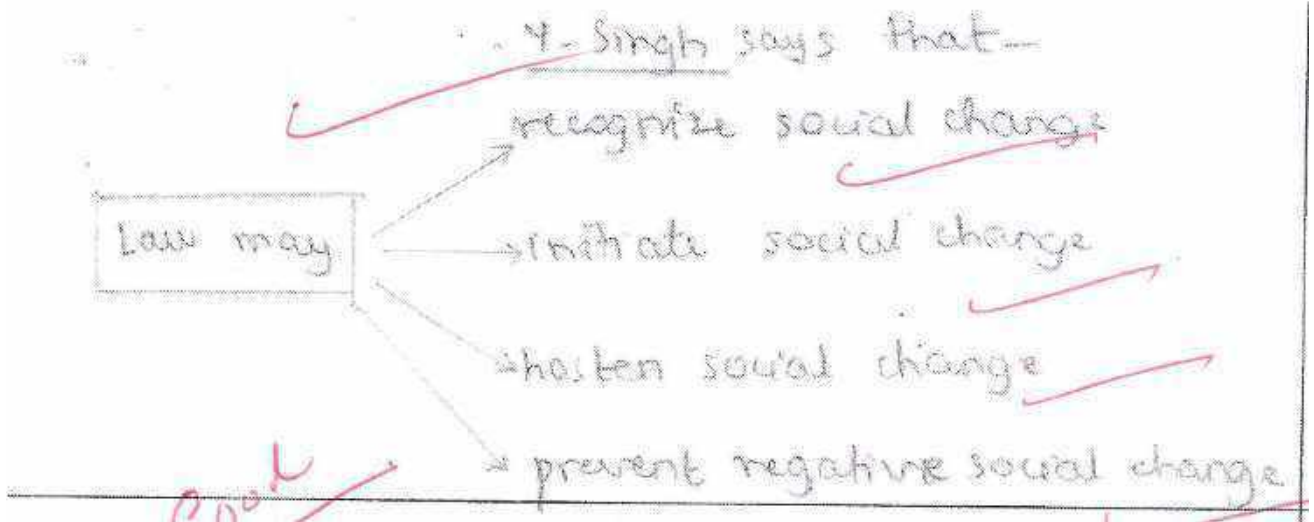 Y. Singh says that—
recognize social change
Law may
initiate social change
hasten social change
prevent negative social change
Good